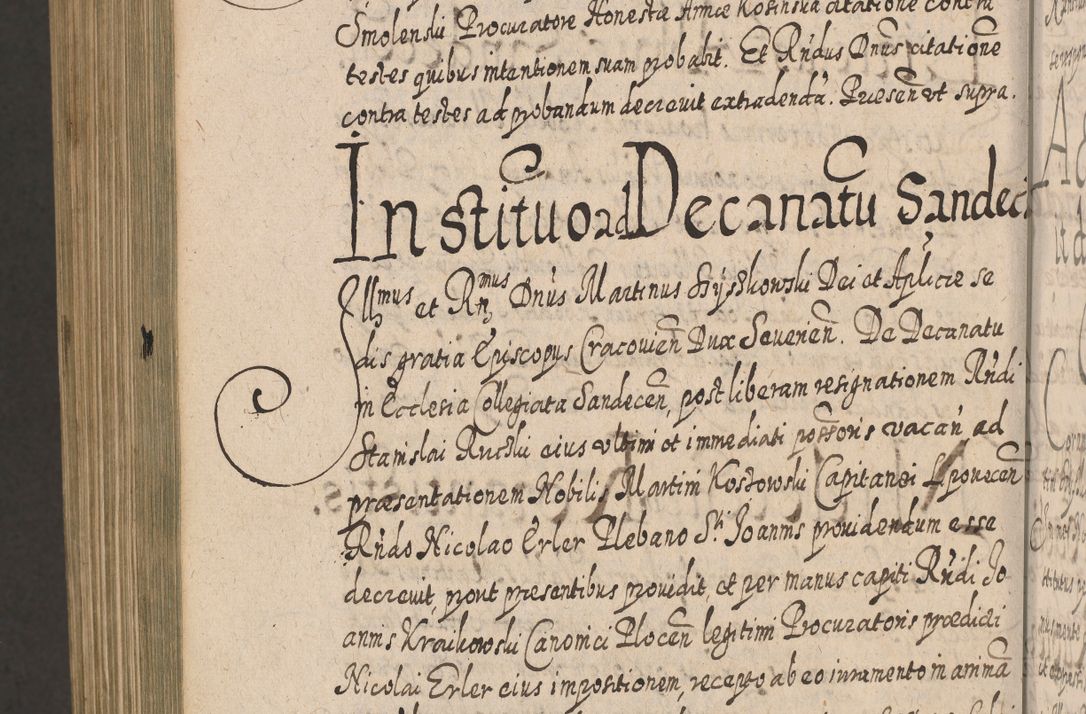 Smolenski Procuratore Honestæ Annæ Kosinska citatione contra
testes quibus intentionem suam probabit. Et Rndus Dnus citatione
contra testes ad probandum decrevit extradendã. Præsen̄ ut supra.
Institutio ad Decanatũ Sandeci
Illmus et Rmus Dnus Martinus Szyszkowski Dei et Aplicæ se
dis gratia Episcopus Cracovien̄ Dux Severien̄. De Decanatu
in Ecclesia Collegiata Sandecen̄, post liberam resignationem Rndi
Stanislai eius ultimi et immediati possoris vacan̄, ad
præsentationem Nobilis Martini Kostowski Capitanei Lipovecen̄
Rndo Nicolao Erler Plebano Sti Joannis providendum esse
decrevit, prout præsentibus providit, et per manus capiti Rndi Jo
annis Kraikowski Canonici Plocen̄ legitimi Procuratoris prædicti
Nicolai Erler eius impositionem, recepto ab eo iuramento in animã